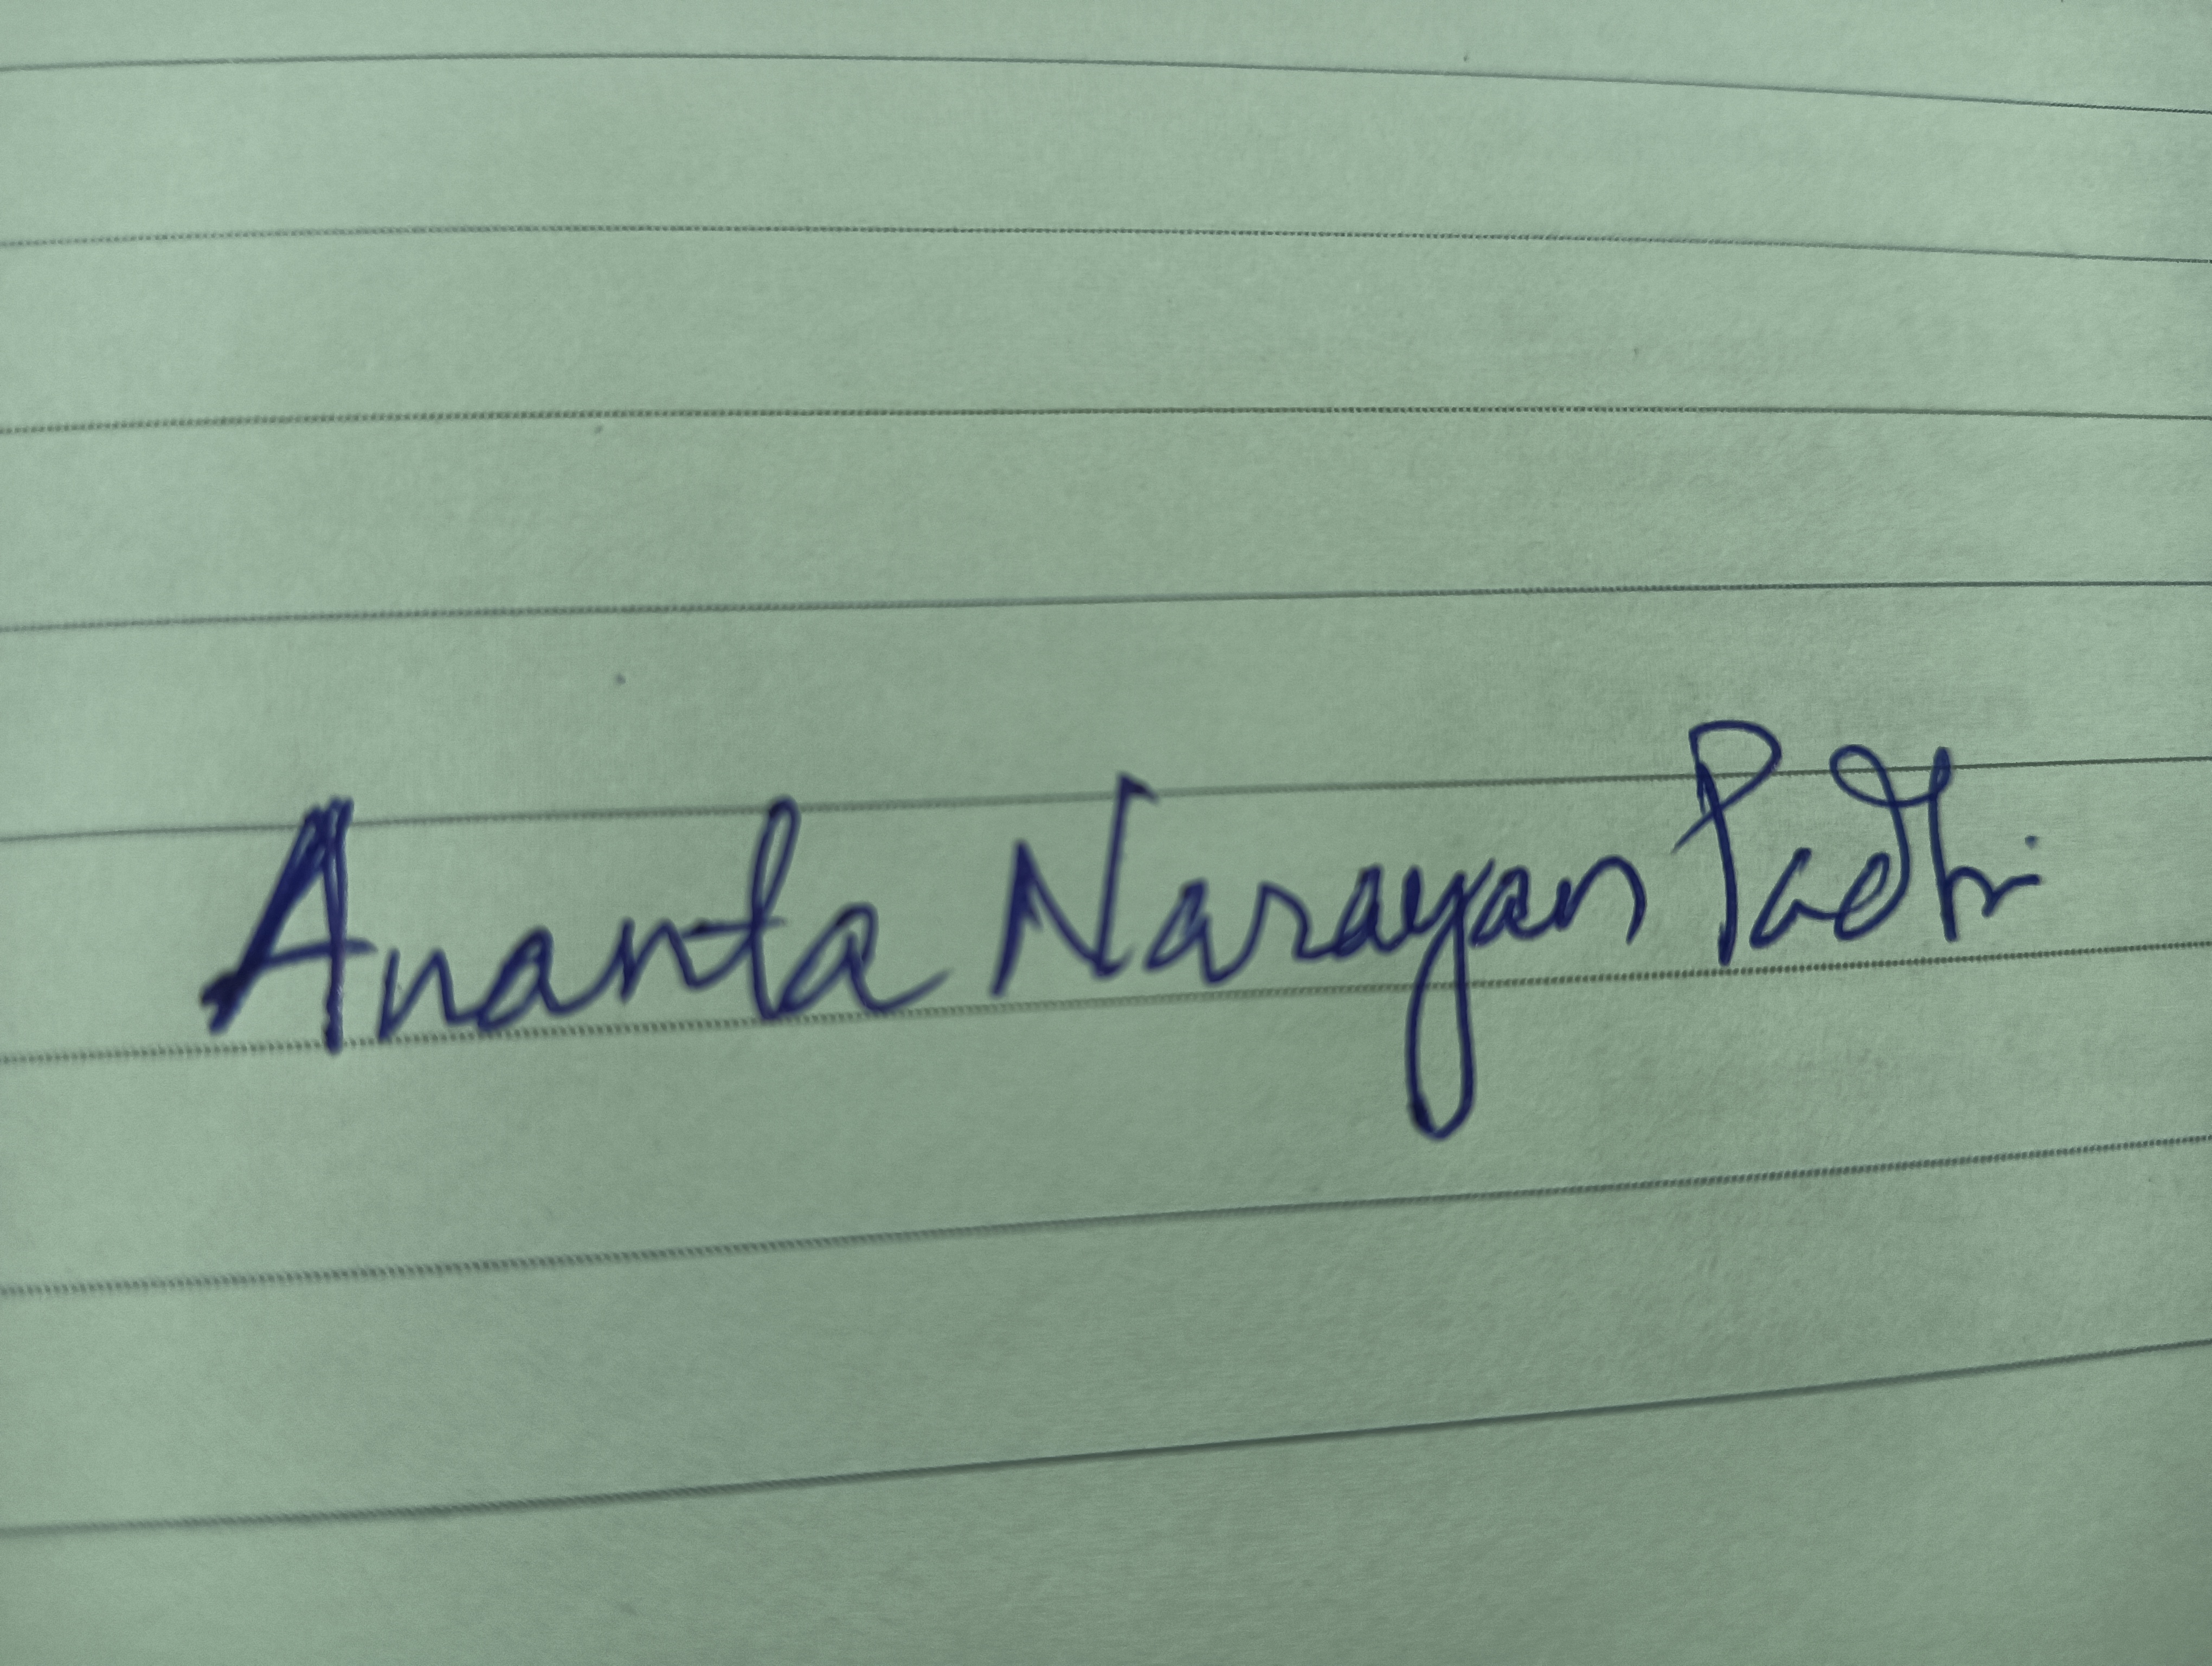 Ananta Narayan Padhi